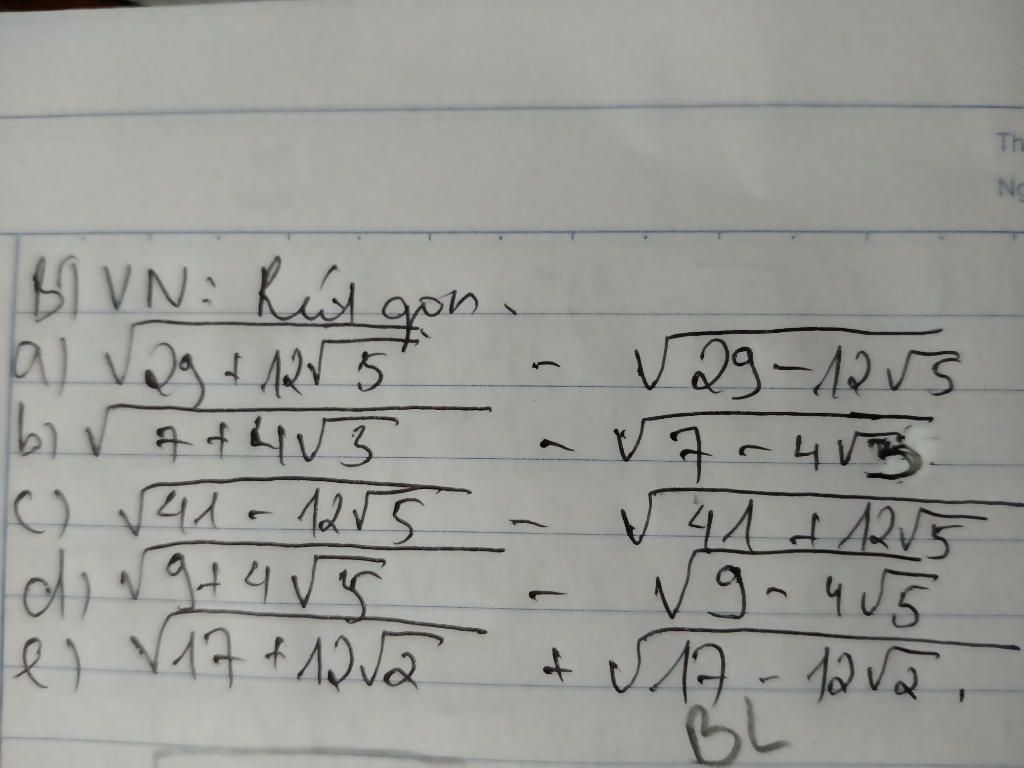 Th
Ng
BTVN: Rút gọn.
a) √(29 + 12√5) - √(29 - 12√5)
b) √(7 + 4√3) - √(7 - 4√3)
c) √(41 - 12√5) - √(41 + 12√5)
d) √(9 + 4√5) - √(9 - 4√5)
e) √(17 + 12√2) + √(17 - 12√2).
BL